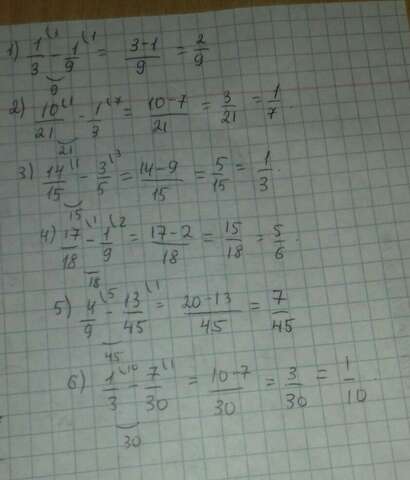 1) 1/3 \1 - 1/9 \1 = (3-1)/9 = 2/9
9
2) 10/21 \1 - 1/3 \7 = (10-7)/21 = 3/21 = 1/7.
21
3) 14/15 \1 - 3/5 \3 = (14-9)/15 = 5/15 = 1/3.
15
4) 17/18 \1 - 1/9 \2 = (17-2)/18 = 15/18 = 5/6.
18
5) 4/9 \5 - 13/45 \1 = (20-13)/45 = 7/45
45
6) 1/3 \10 - 7/30 \1 = (10-7)/30 = 3/30 = 1/10.
30